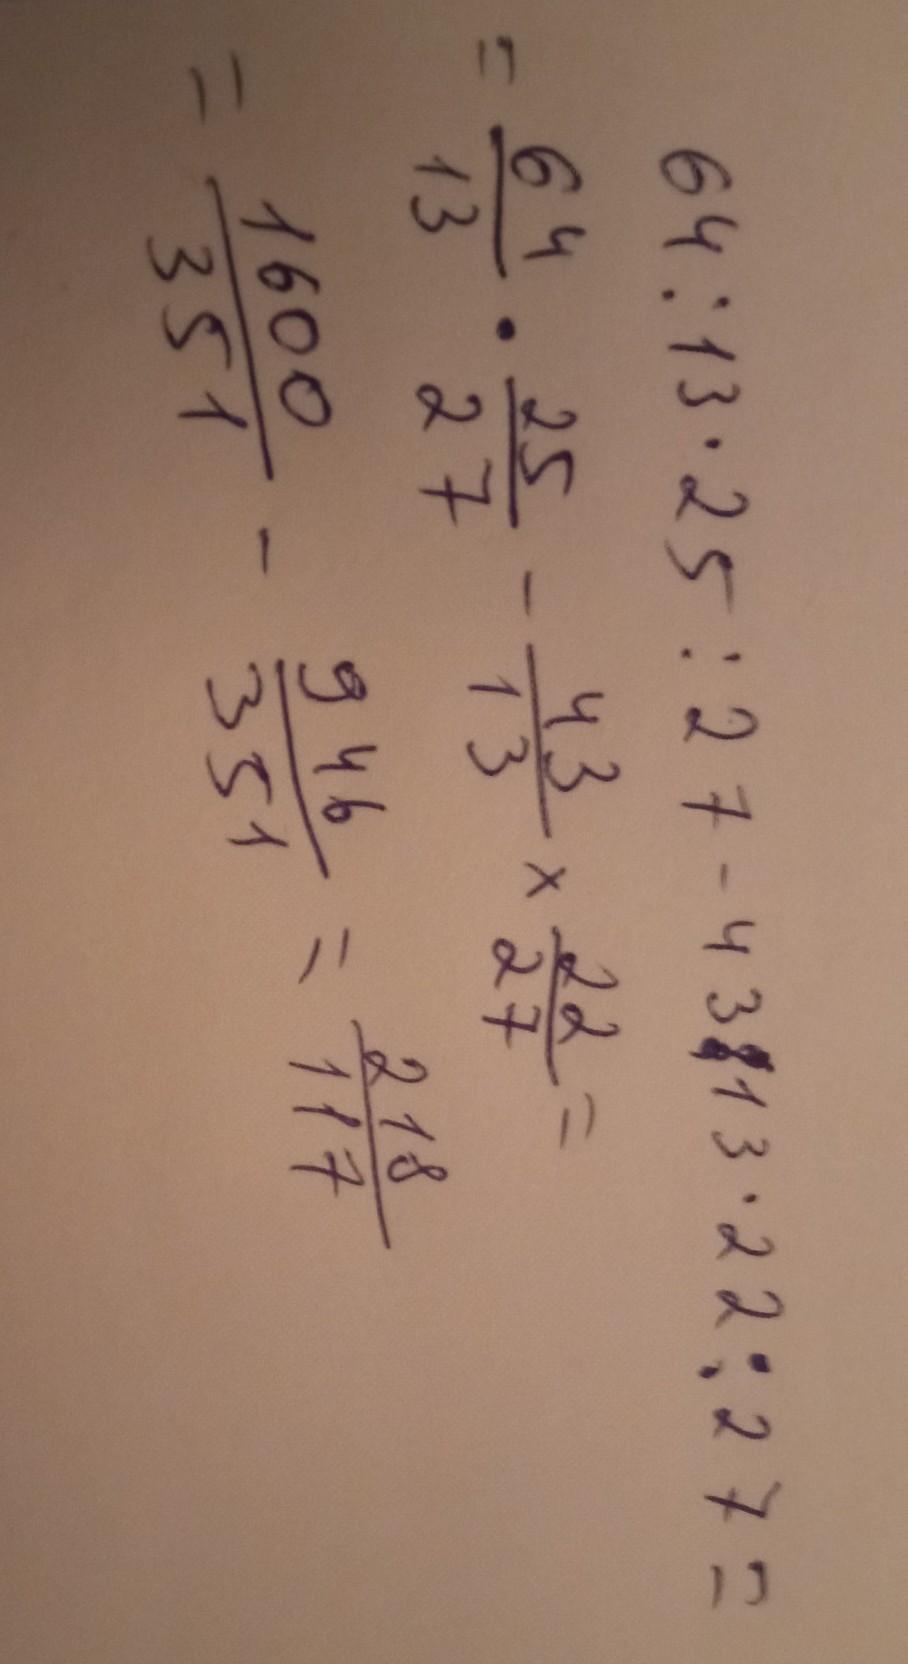 64:13·25:27-43:13·22:27=
= 64/13 · 25/27 - 43/13 × 22/27 =
= 1600/351 - 946/351 = 218/117